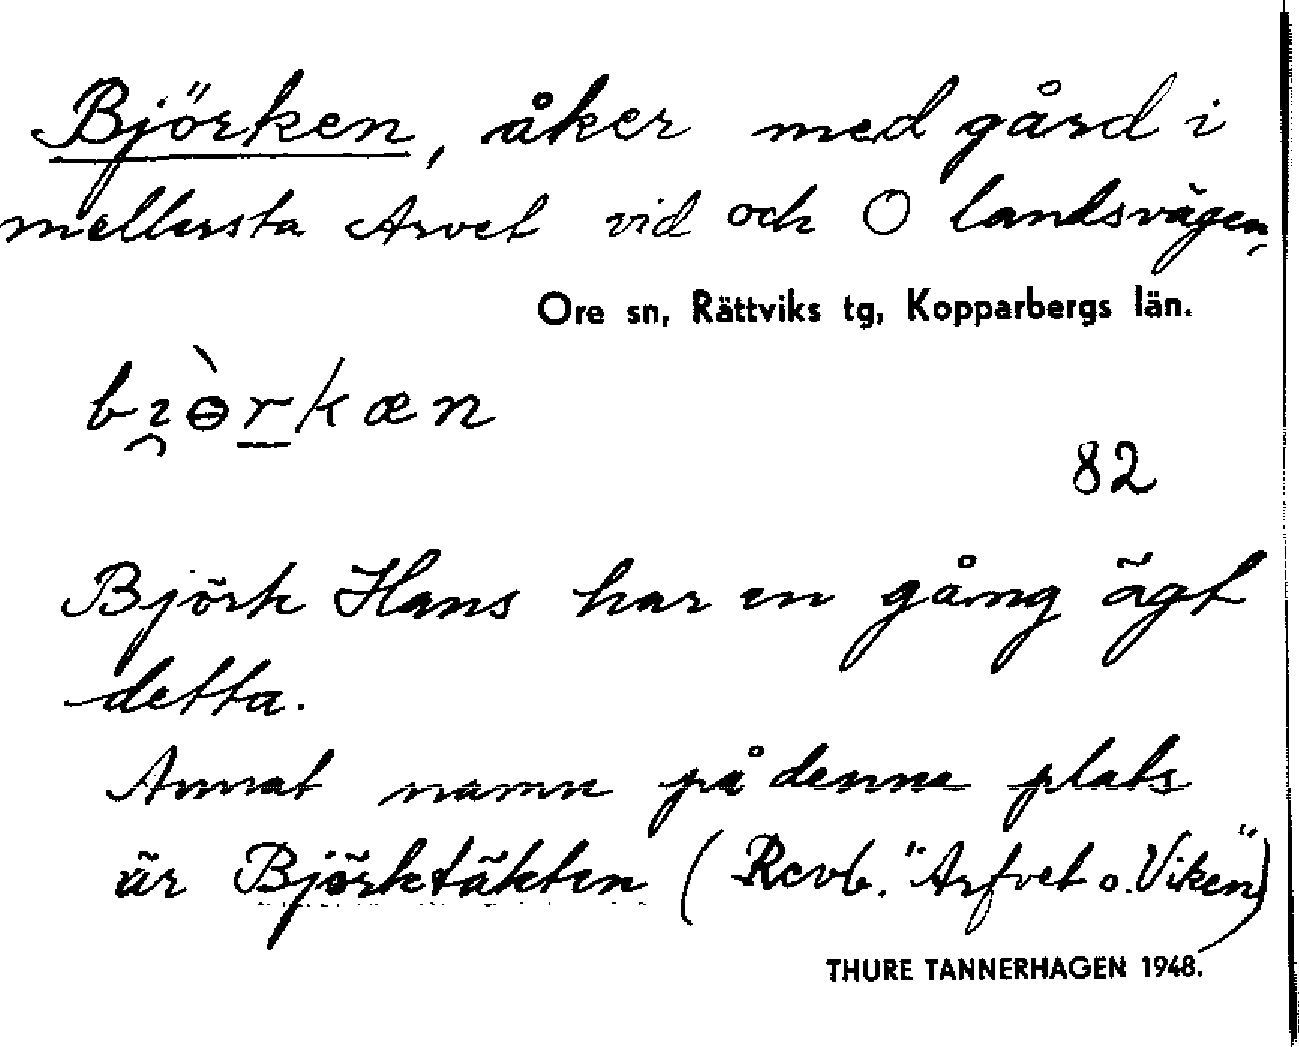 Björken, åker med gård i
mellersta Arvet vid och O landsvägen,
Ore sn, Rättviks tg, Kopparbergs län.
bi̯ɵ̀r̠kæn
82
Björk Hans har en gång ägt
detta.
Annat namn på denna plats
är Björktäkten (Rcvb. "Arfvet o. Viken")
THURE TANNERHAGEN 1948.